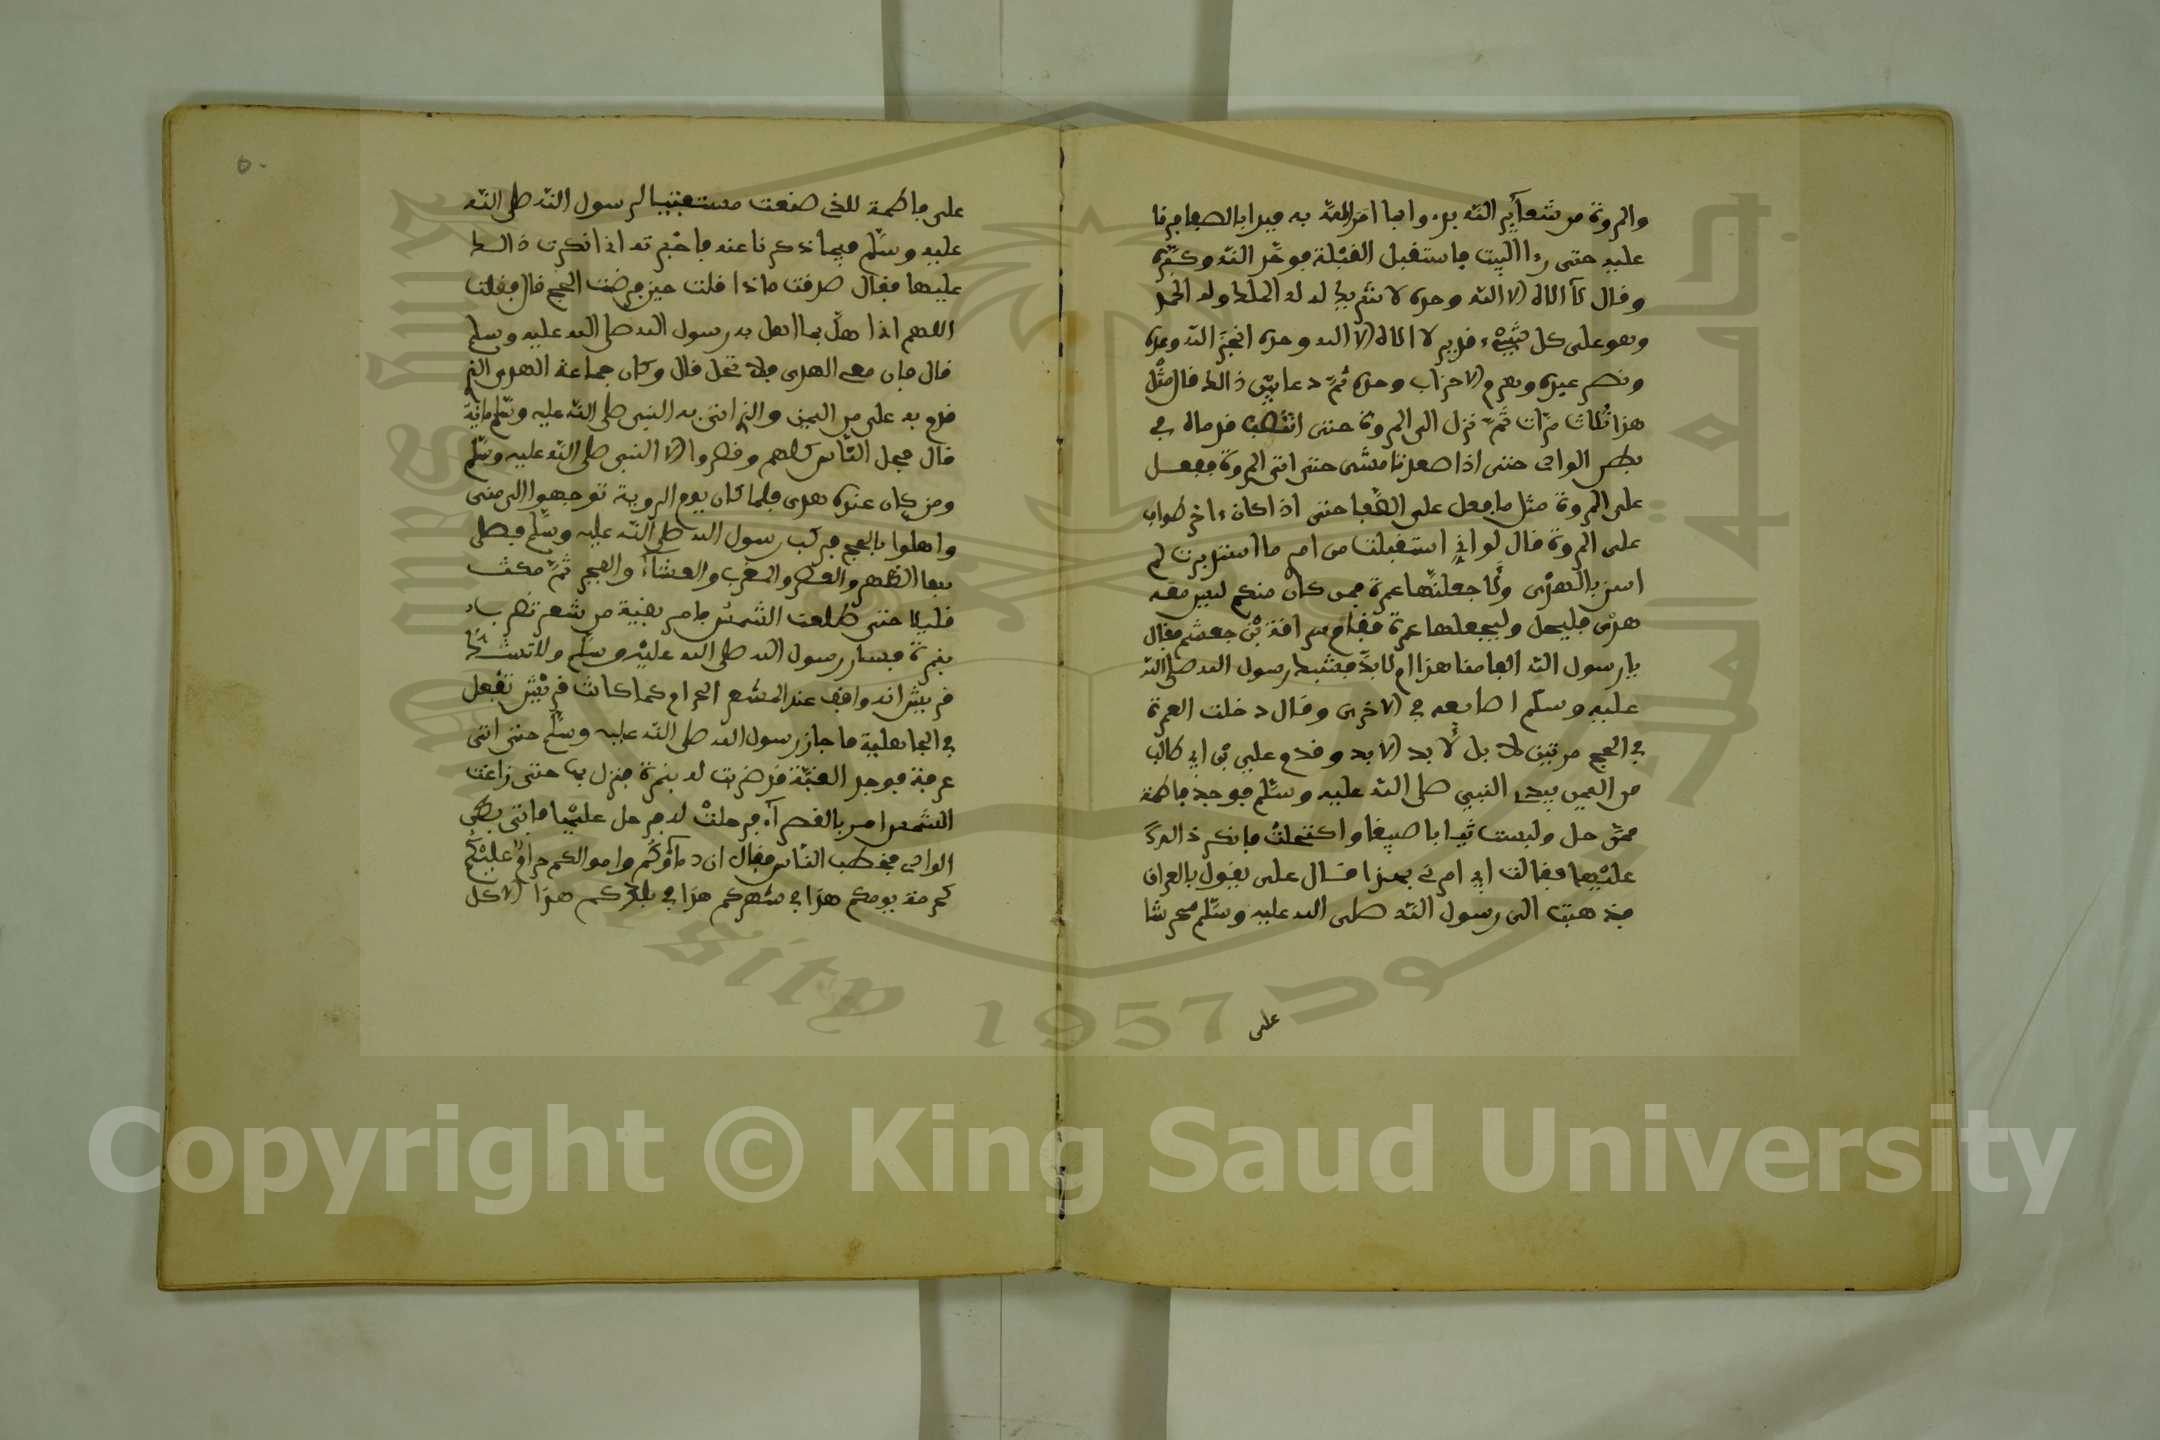 والمروة من شعآير الله بدءوا بما امر الله به فبدا بالصفا فرقا
عليه حتى رءا البيت فاستقبل القبلة فوحّد الله وكبّره
وقال لآ الاه الا الله وحده لا شريك له له الملك وله الحمد
وهو على كل شيْء قدير لا الاه الا الله وحده انجز الله وعده
ونصر عبده وهزم الاحزاب وحده ثمّ دعا بين ذالك قال مثْل
هذا ثلاث مرّات ثمّ نزل الى المروة حتى انتصبت قدماه في
بطن الوادي حتى اذا صعدتا مشى حتى اتى المروة ففعل
على المروة مثل ما فعل على الصّفا حتى اذا كان ءاخر طواف
على المروة قال لو اني استقبلت من امري ما استدبرت لم
اسق الهدْي ولجعلتها عمرة فمن كان منكم ليس معه
هدْي فليحل وليجعلها عمرة فقام سراقة بْن جعشم فقال
يا رسول الله العامنا هذا ام لابدّ فشبك رسول الله صلى الله
عليه وسلّم اصابعه في الاخرى وقال دخلت العمرة
في الحج مرتين لا بل لأبد الابد وقدم علي بن ابي طالب
من اليمن ببدن النبيي صلى الله عليه وسلّم فوجد فاطمة
ممّن حل ولبست ثيابا صبيغا واكتحلتْ فانكر ذالك
عليْها فقالت ابي امرني بهذا قال على يقول بالعراق
فذهبت الى رسول الله صلى الله عليه وسلّم محرشا
على
٥٠
على فاطمة للذي صنعت مستفتيا لرسول الله صلى الله
عليه وسلّم فيما ذكرنا عنه فاخبرته اني انكرت ذالك
عليها فقال صدقت ماذا قلت حين فرضت الحج قال فقلت
اللهم اني اهلّ بما اهل به رسول الله صلى الله عليه وسلم
قال فان معي الهدى فلا تحل قال وكان جماعة الهدى الذي
قدم به على من اليمن والذي اتى به النبي صلى الله عليه وسلّم مائة
قال فحل النّاس كلهم وقصروا الا النبي صلى الله عليه وسلّم
ومن كان عنده هدى فلما كان يوم التروية توجهوا الى منى
واهلوا بالحج فركب رسول الله صلى الله عليه وسلّم فصلى
بها الظهر والعصر والمغرب والعشآء والفجر ثمّ مكث
قليلا حتى طلعت الشمس فامر بقبة من شعر تضرب له
بنمرة فسار رسول الله صلى الله عليْه وسلّم ولا تشك
قريش انه واقف عند المشعر الحرام كما كانت قريْش تفعل
في الجاهلية فاجاز رسول الله صلى الله عليه وسلّم حتى اتى
عرفة فوجد القبّة قد ضربت له بنمرة فنزل بها حتى زاغت
الشمس امر بالقصوآء فرحلتْ له فرحل عليْها فاتى بطن
الوادي فخطب النّاس فقال ان دمآءكُم واموالكم حرامٌ عليْكُم
كحرمة يومكم هذا في شهركم هذا في بلدكم هذا الا كل
Copyright © King Saud University
جامعة الملك سعود
King Saud University 1957